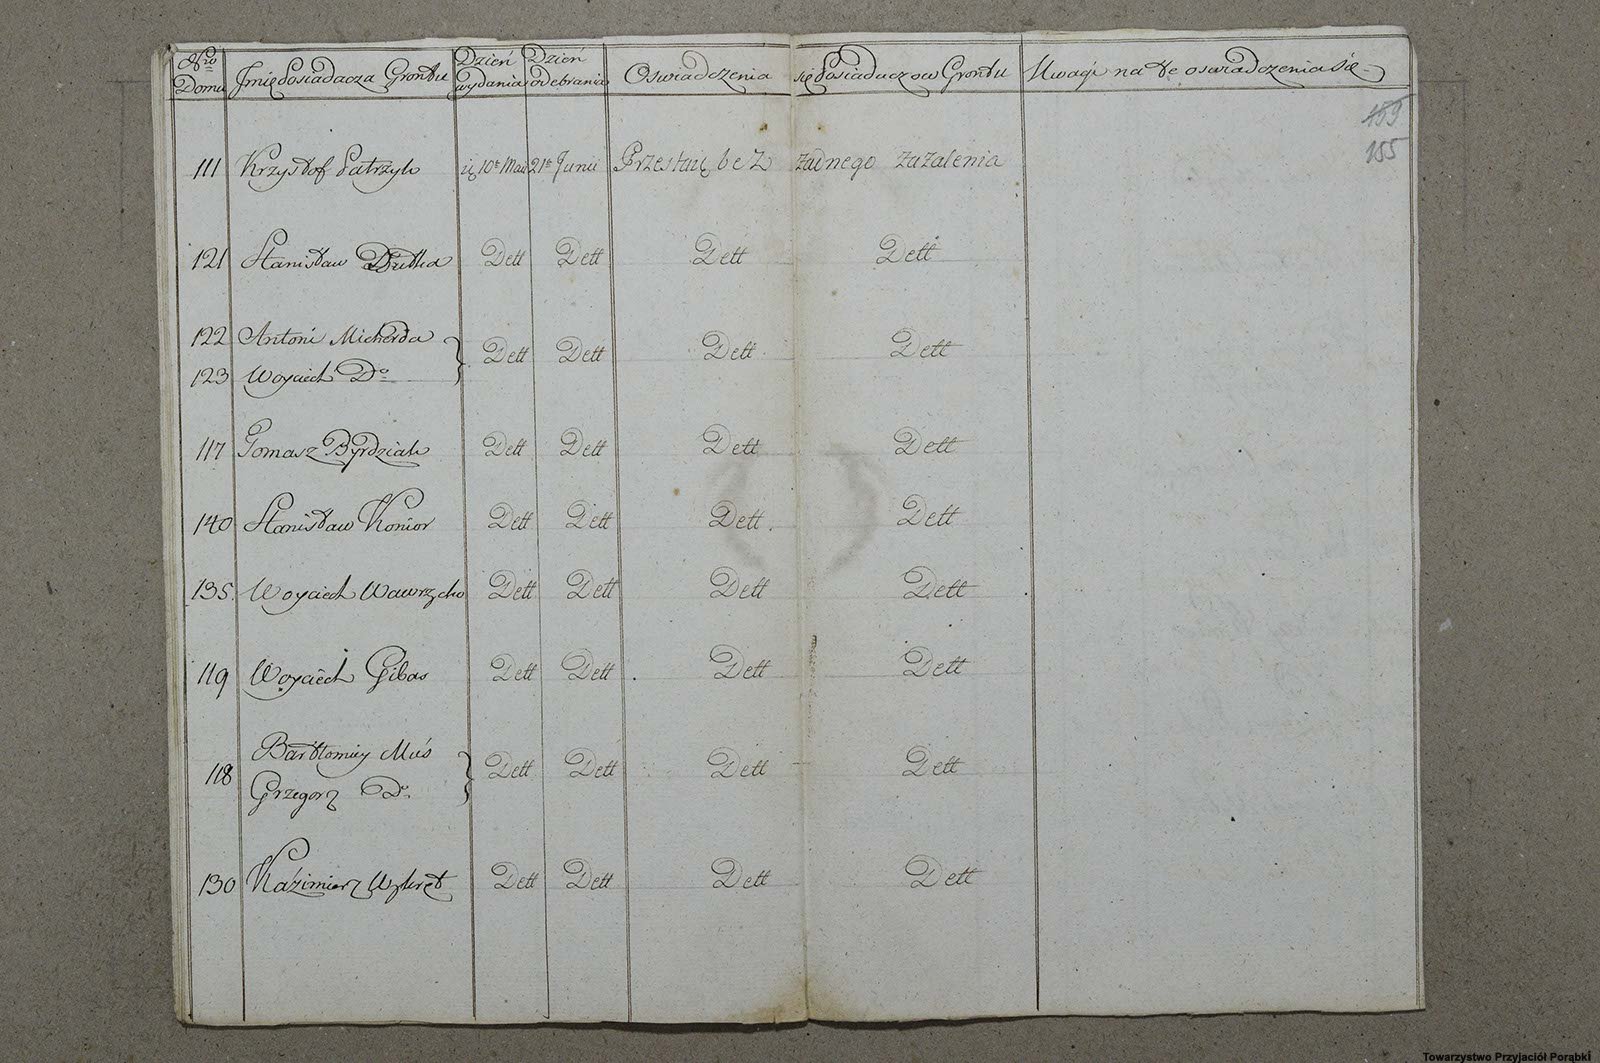 Nro Domu Imie Posiadacza Grontu Dzień wydania Dzień odebrania Oswiadczenia się Posiadaczow Grontu Uwagi na te oswiadczenia się
159
155
111 Krzysztof Patrzyk 10te Maii 21te Junii Przestaię bez zadnego zazalenia
121 Stanisław Dutka Dett Dett Dett Dett
122 Antoni Micherda Dett Dett Dett Dett
123 Woyciech Do
117 Tomasz Byrdziak Dett Dett Dett Dett
140 Stanisław Konior Dett Dett Dett Dett
135. Woyciech Wawrzcko Dett Dett Dett Dett
119 Woyciech Gibas Dett Dett Dett Dett
118 Bartłomiey Muś Dett Dett Dett Dett
Grzegorz Do
130 Kazimierz Wykręt Dett Dett Dett Dett
Towarzystwo Przyjaciół Porąbki